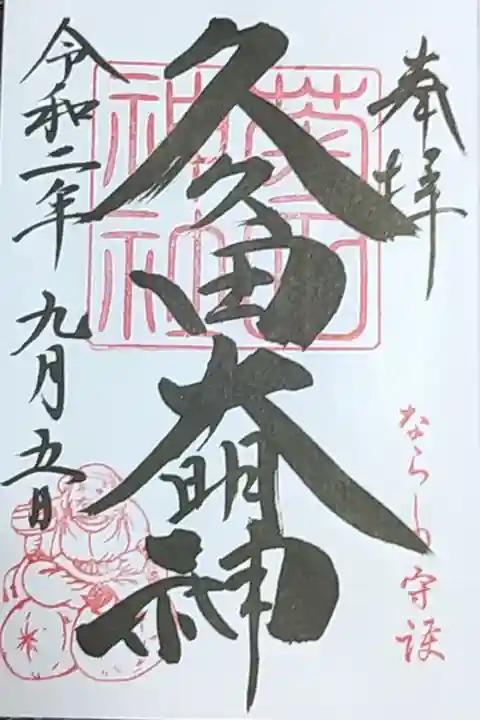 奉拝
ならしの守護
久久田大明神
菊田
神社
令和二年 九月五日